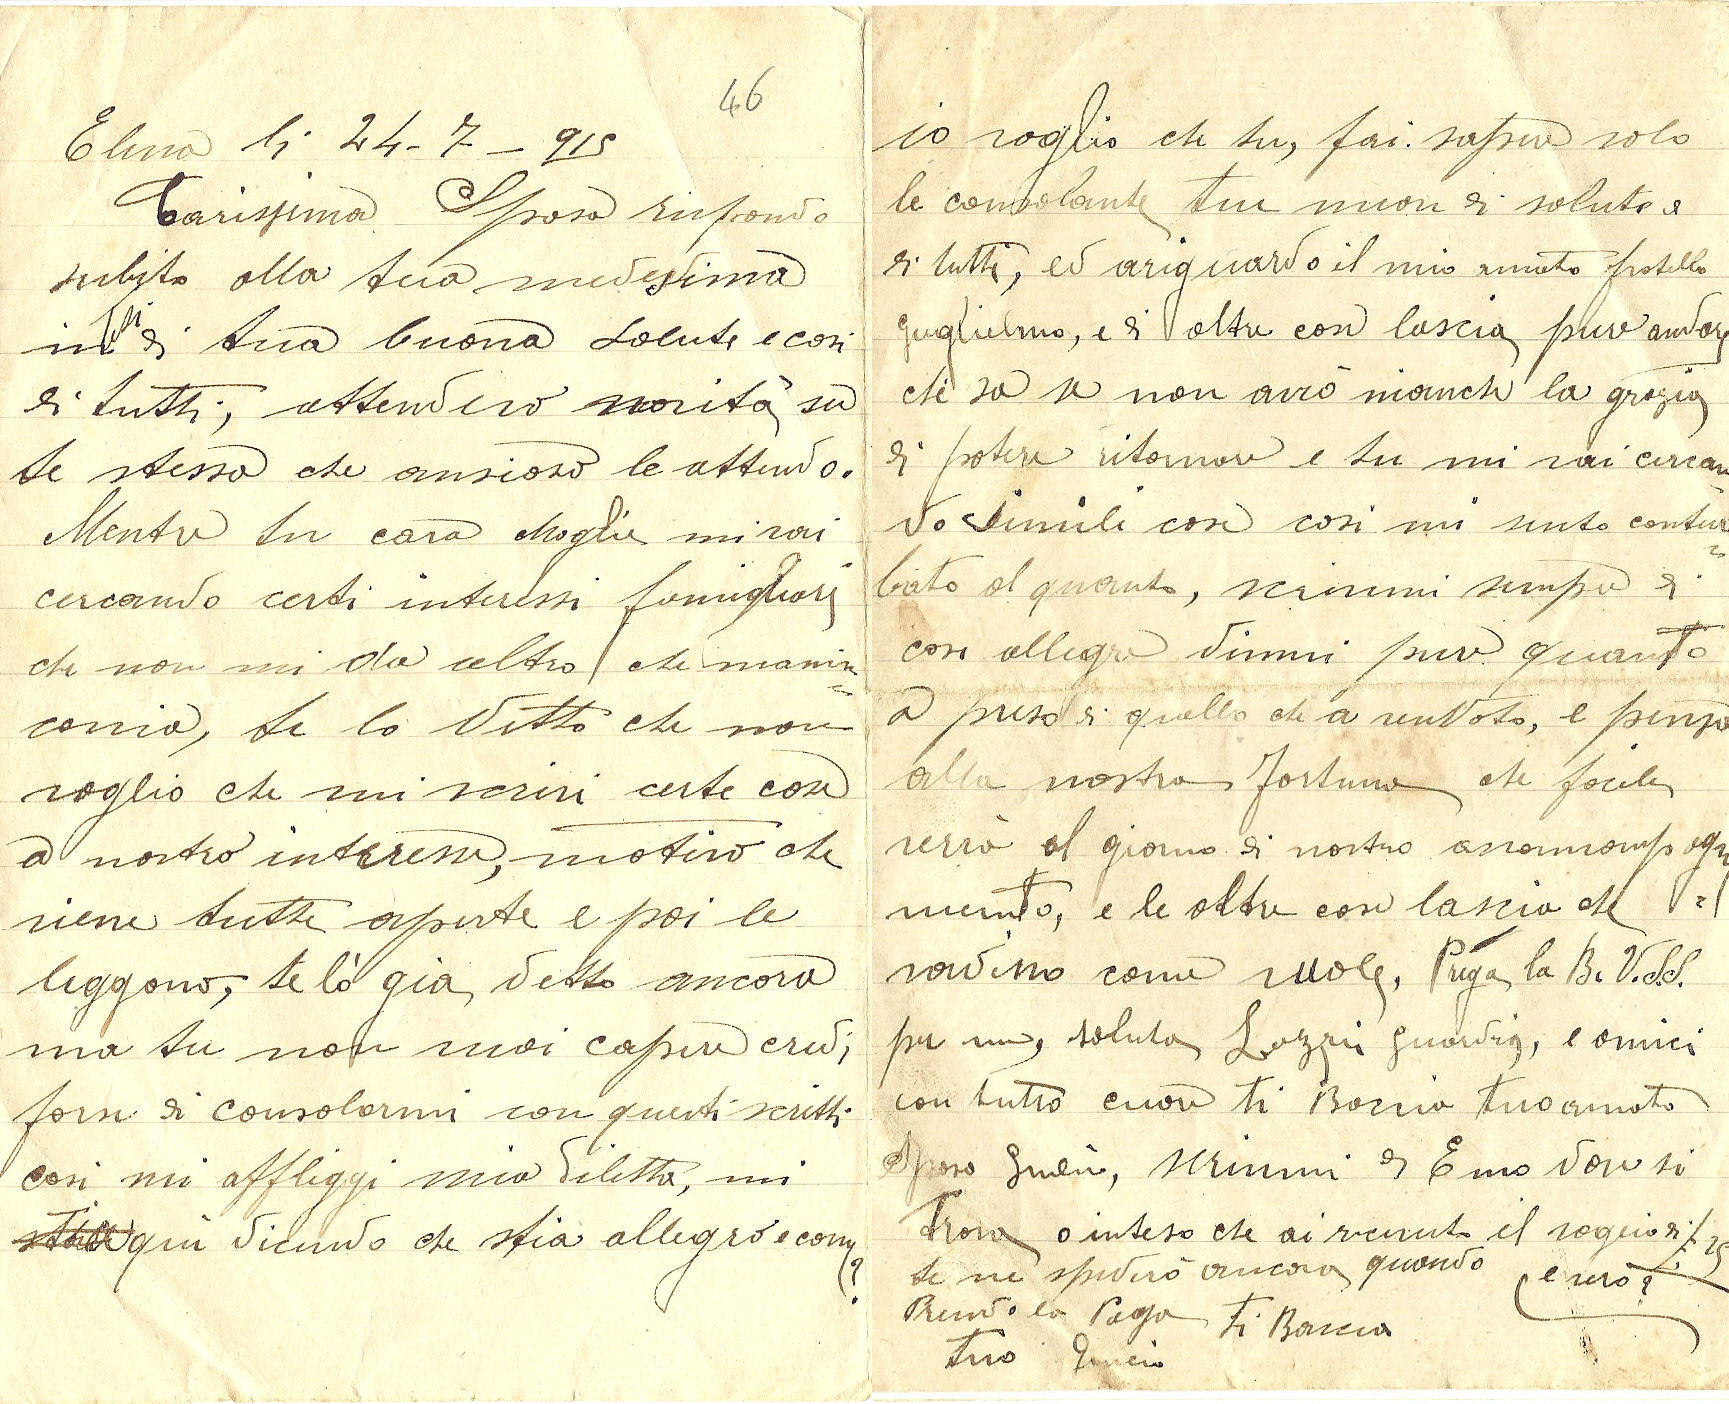 46
Elena li 24-7-915
Carissima Sposa rispondo
subito alla tua medesima
di tua buona salute e cosi
di tutti, attendero novità su
te stessa che ansioso le attendo.
Mentre tu cara Moglie mi vai
cercando certi interessi famigliari
che non mi da altro che manin=
conia, te lo ditto che non
voglio che mi scrivi certe cose
a nostro interesse, motivo che
viene tutte aperte e poi le
leggono, te lò già detto ancora
ma tu non vuoi capire credi
forse di consolarmi con questi scritti
cosi mi affliggi mia diletta, mi
quì dicendo che stia allegro e come?
io voglio che tu, fai sapere solo
le consolante tue nuove di salute e
di tutti, ed ariguardo il mio amato fratello
Guglielmo, e di altre cose lascia pure andare
chi sa se non avrò nianche la grazia
di potere ritornare e tu mi vai cercan
do simili cose cosi mi sento contur=
bato al quanto, scrivimi sempre di
cose allegre dimmi pure quanto
a preso di quello che a venduto, e pensa
alla nostra Fortuna che facile
verrà al giorno di nostro
mento, e le altre cose lascia che
vadino come vuole, Prega la B. V. S.S.
per me, saluta Lazzri Guardia, e amici
con tutto cuore ti Baccio tuo amato
Sposo scrivimi di Emo dove si
Trova o inteso che ai ricevuto il vaglia di £ 25
te ne spederò ancora quando e vero?
Prendo la Paga ti Baccia
Tuo